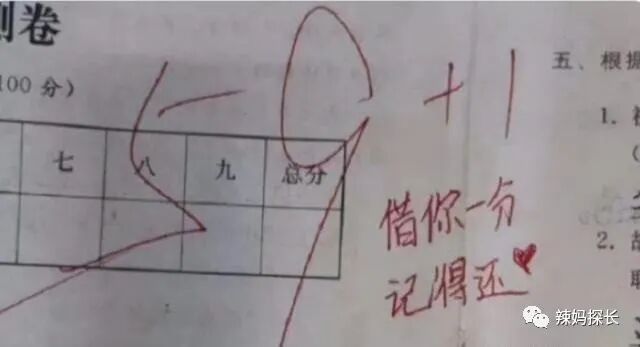 测卷
100分)
七 八 九 总分
59+1
借你一分
记得还
五、根据
1.
(
2. 故
取
辣妈探长